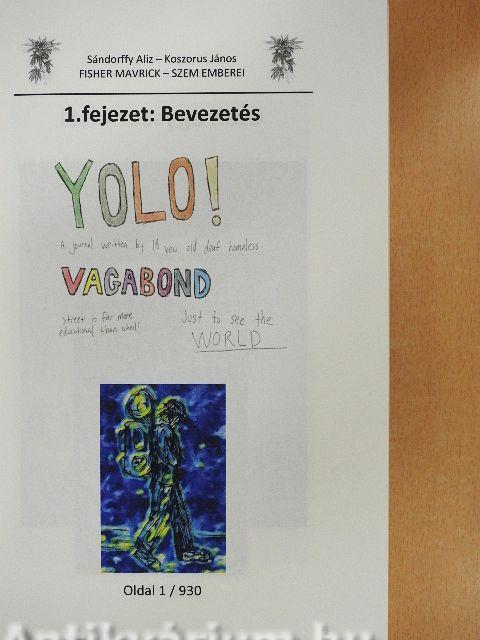 Sándorffy Aliz – Koszorus János
FISHER MAVRICK – SZEM EMBEREI
1.fejezet: Bevezetés
YOLO!
A journal written by 18 year old deaf homeless
VAGABOND
Street is far more
educational than school!
Just to see the
WORLD
Oldal 1 / 930
Antikvárium.hu